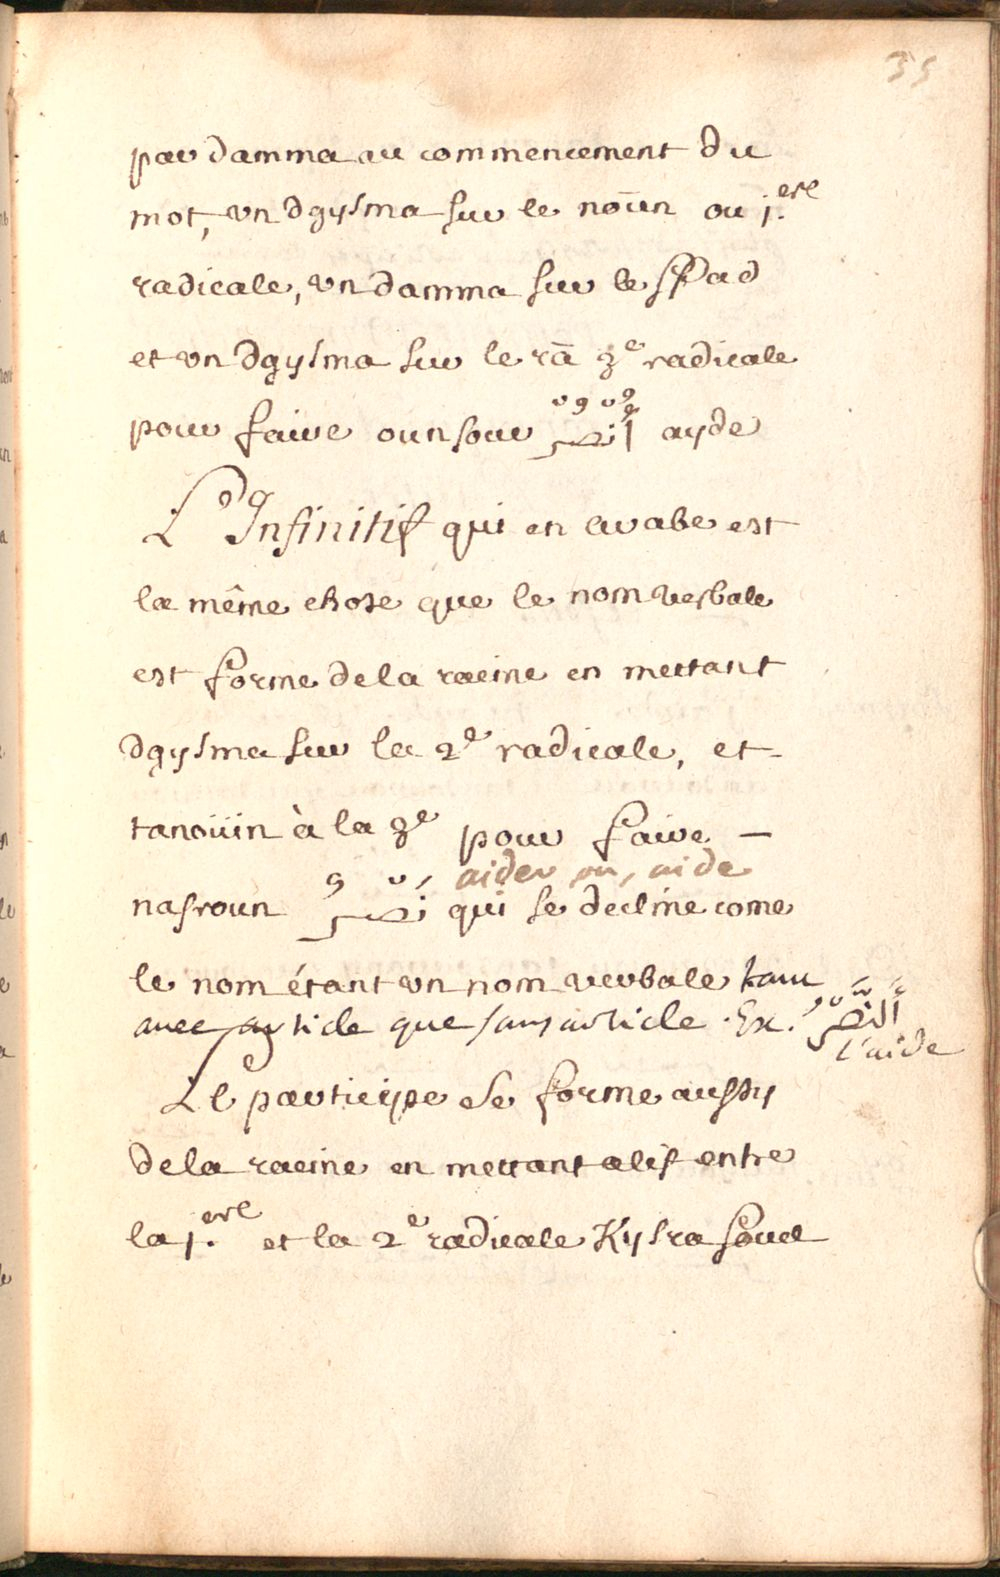 35
par damma au commencement du
mot, vn dgysma sur le noūn ou j.ere
radicale, vn damma sur le ssad
et vn dgysma sur le rā 3e radicale
pour faire ounsour اُنْصُرْ ayde
L'Infinitif qui en arabe est
la même chose que le nom verbale
est forme de la racine en mettant
dgysma sur la 2e radicale, et
tanoüin à la 3e pour faire —
aider ou, aide
nasroun نَصْرٌ qui se decline come
le nom étant vn nom verbale tant
avec article que sans article. Ex. النَّصْرُ
l'aide
Le participe se forme aussy
de la racine en mettant alif entre
la j.ere et la 2e radicale Kysra soue